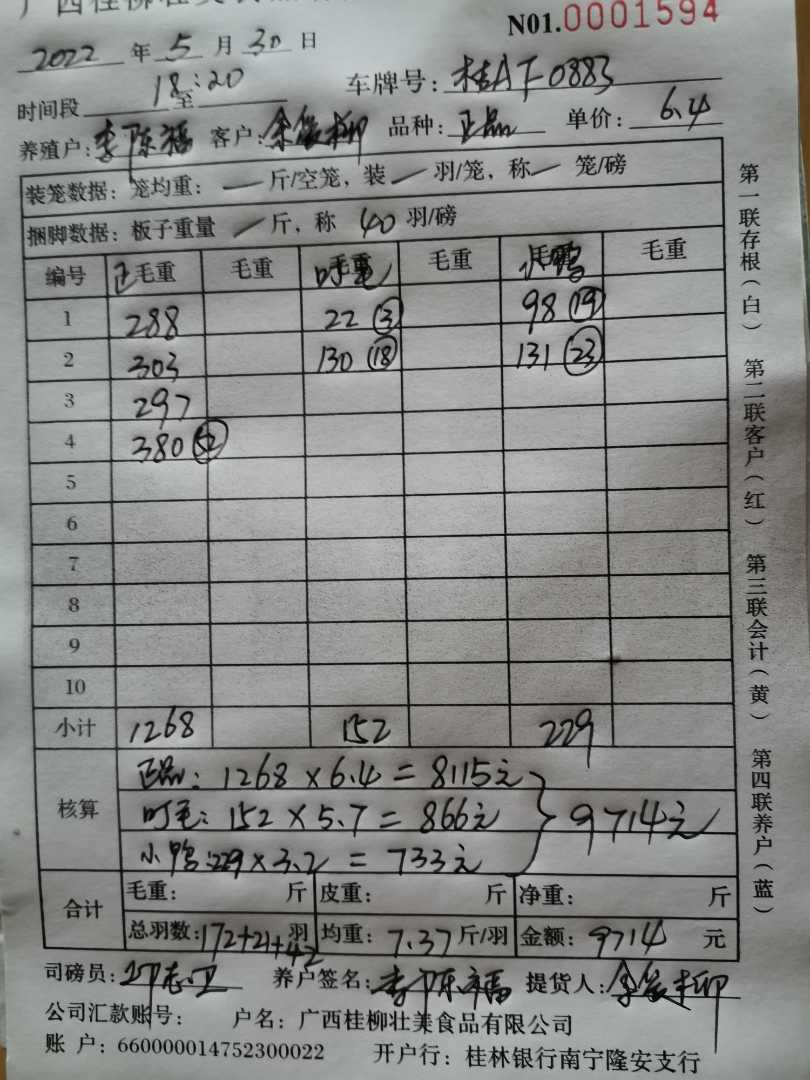 广西桂柳壮美食品有限
N01.0001594
2022 年 5 月 30 日
时间段 18:20 至 车牌号: 桂AF0883
养殖户: 李陈福 客户: 品种: 正品 单价: 6.4
装笼数据: 笼均重: — 斤/空笼, 装 — 羽/笼, 称 — 笼/磅
捆脚数据: 板子重量 — 斤, 称 40 羽/磅
编号 正毛重 毛重 叮毛重 毛重 小鸭 毛重
1 288 22 ③ 98 ⑲
2 303 130 ⑱ 131 ㉓
3 297
4 380 52
5
6
7
8
9
10
小计 1268 152 229
核算
正品: 1268 × 6.4 = 8115元
叮毛: 152 × 5.7 = 866元
小鸭: 229 × 3.2 = 733元
9714元
合计
毛重: 斤 皮重: 斤 净重: 斤
总羽数: 172+21+42 羽 均重: 7.37 斤/羽 金额: 9714 元
司磅员: 养户签名: 李陈福 提货人:
公司汇款账号: 户名: 广西桂柳壮美食品有限公司
账 户: 660000014752300022 开户行: 桂林银行南宁隆安支行
第一联存根(白) 第二联客户(红) 第三联会计(黄) 第四联养户(蓝)